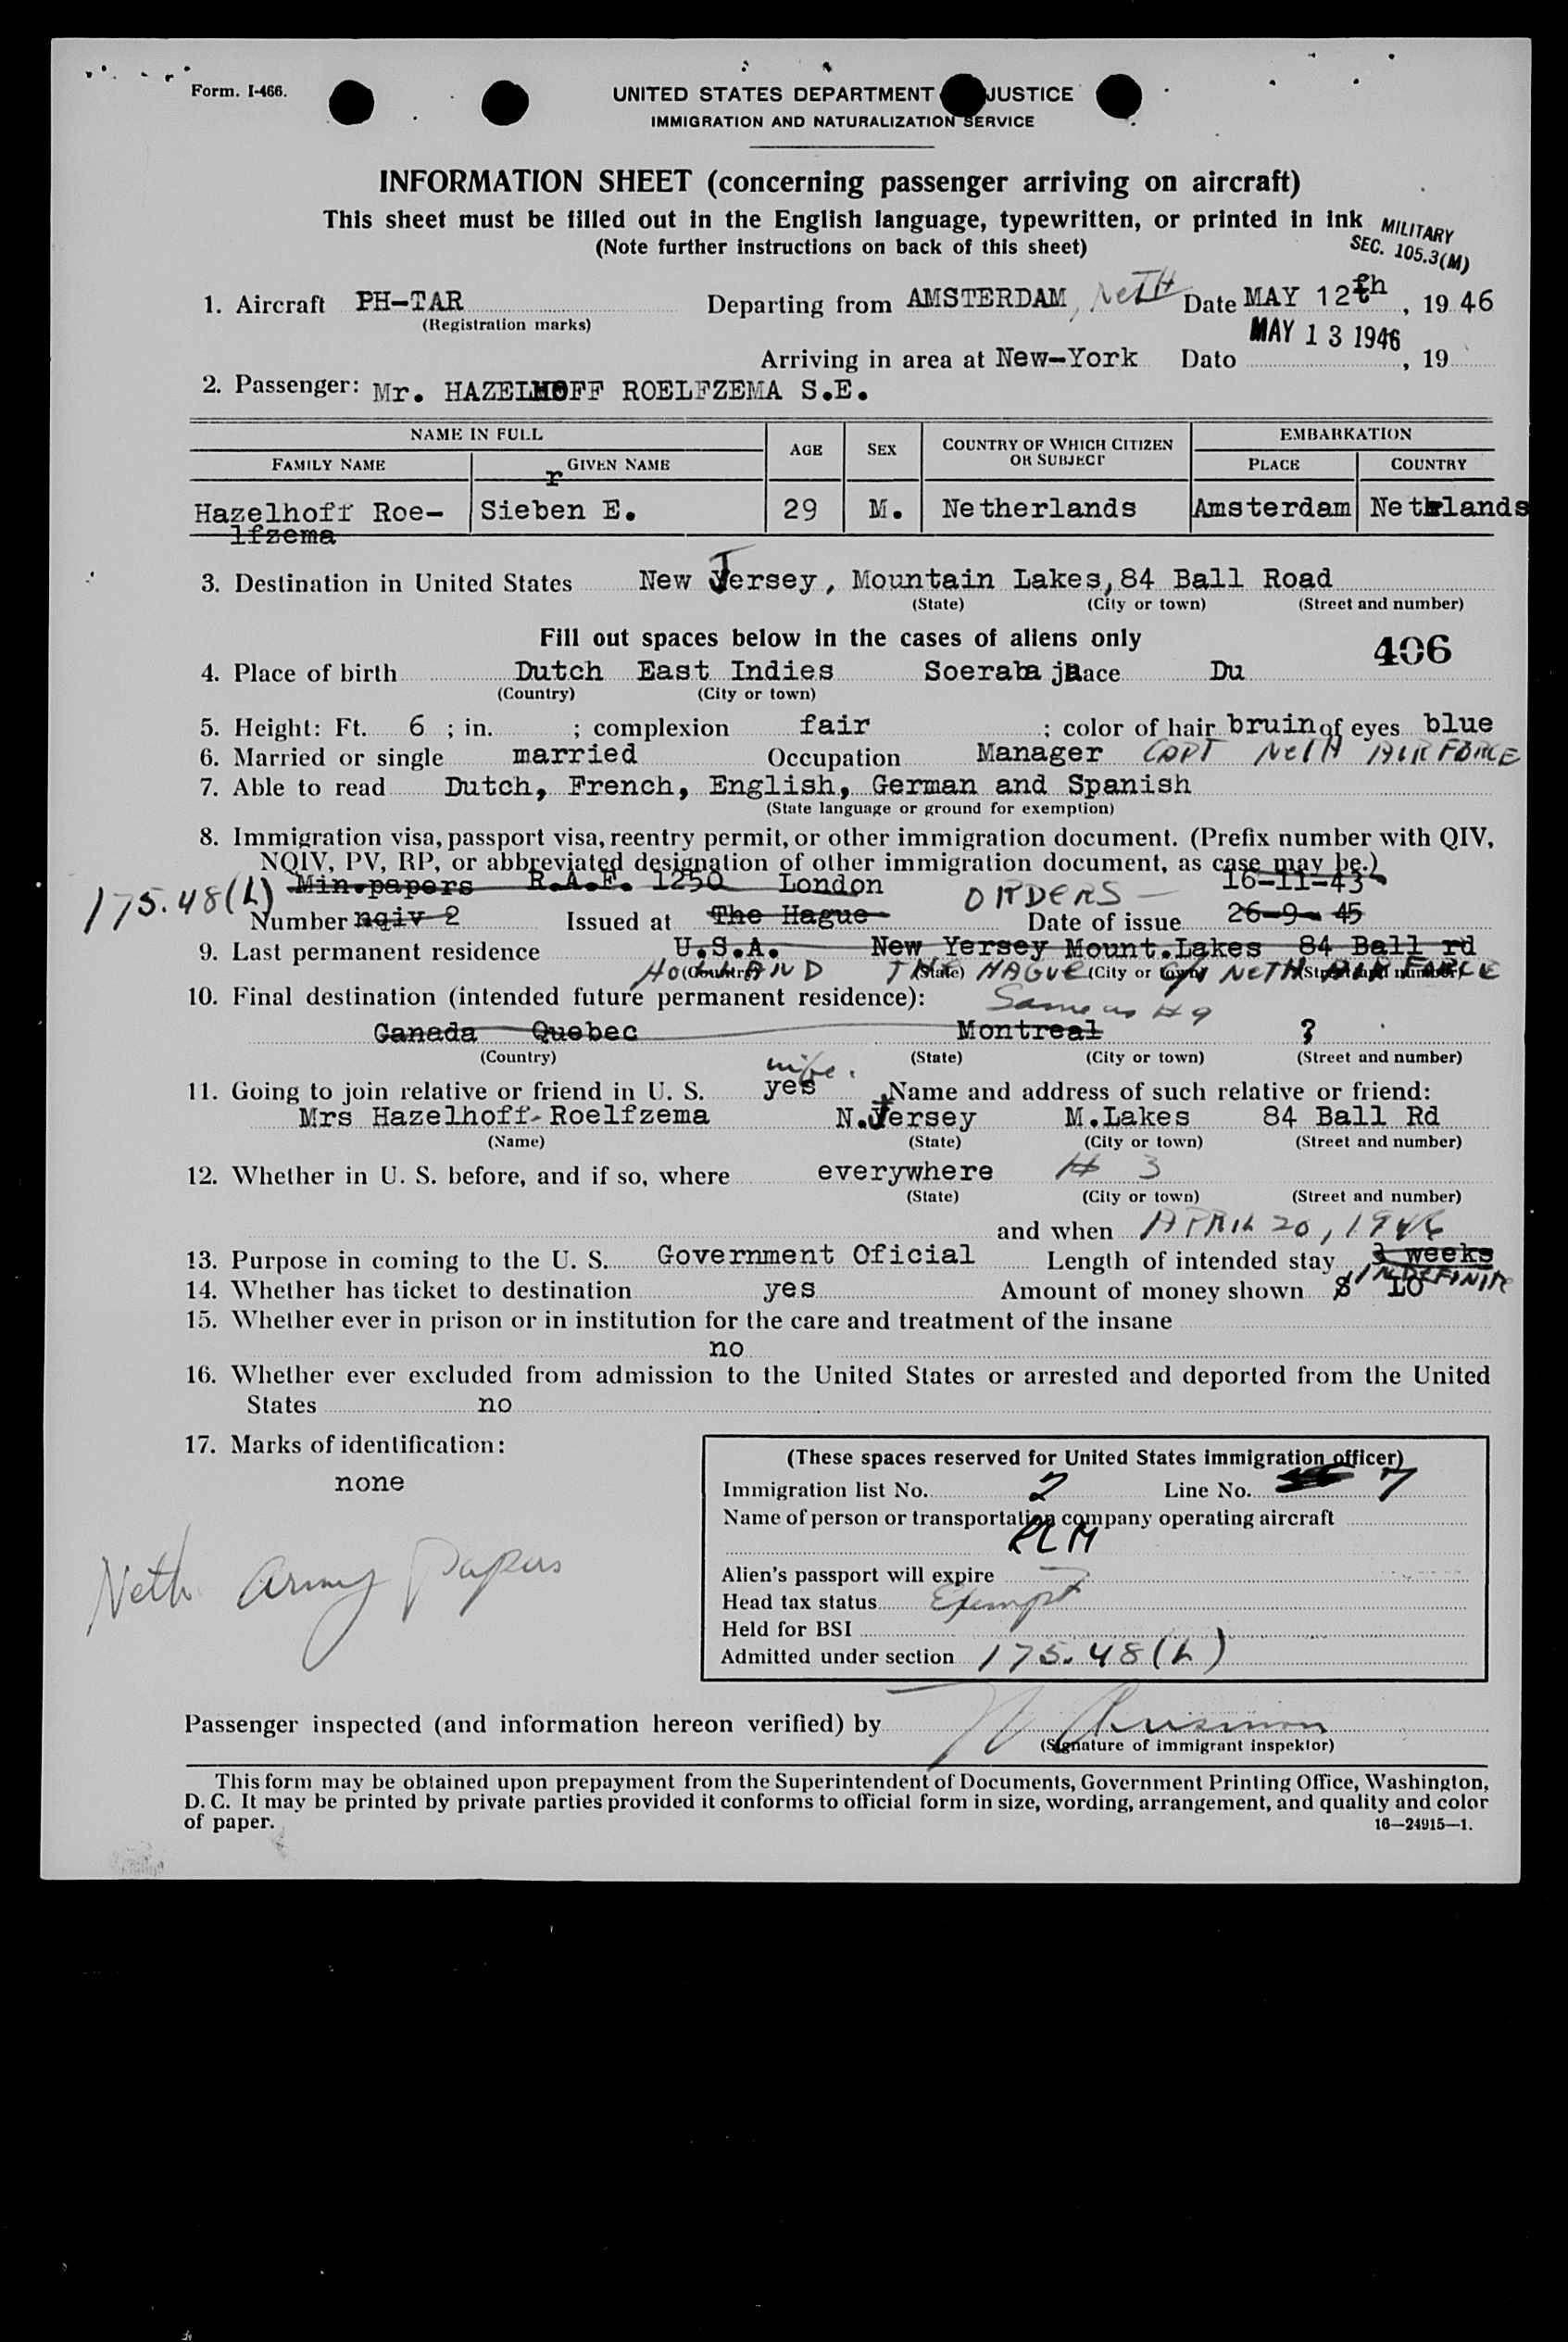 Form. I-466.
UNITED STATES DEPARTMENT JUSTICE
IMMIGRATION AND NATURALIZATION SERVICE
INFORMATION SHEET (concerning passenger arriving on aircraft)
This sheet must be filled out in the English language, typewritten, or printed in ink
(Note further instructions on back of this sheet)
MILITARY
SEC. 105.3(M)
1. Aircraft PH-TAR Departing from AMSTERDAM, NETH Date MAY 12th, 19 46
(Registration marks)
MAY 13 1946
Arriving in area at New-York Dato , 19
2. Passenger: Mr. HAZELHOFF ROELFZEMA S.E.
NAME IN FULL AGE SEX COUNTRY OF WHICH CITIZEN OR SUBJECT EMBARKATION
FAMILY NAME GIVEN NAME PLACE COUNTRY
r
Hazelhoff Roe- Sieben E. 29 M. Netherlands Amsterdam Nethrlands
lfzema
3. Destination in United States New Jersey, Mountain Lakes, 84 Ball Road
(State) (City or town) (Street and number)
Fill out spaces below in the cases of aliens only
406
4. Place of birth Dutch East Indies Soerabaja Race Du
(Country) (City or town)
5. Height: Ft. 6 ; in. ; complexion fair ; color of hair bruin of eyes blue
6. Married or single married Occupation Manager CAPT NETH AIR FORCE
7. Able to read Dutch, French, English, German and Spanish
(State language or ground for exemption)
8. Immigration visa, passport visa, reentry permit, or other immigration document. (Prefix number with QIV,
NQIV, PV, RP, or abbreviated designation of other immigration document, as case may be.)
175.48(L) Min.papers R.A.F. 1250 London ORDERS - 16-11-43
Number nqiv 2 Issued at The Hague Date of issue 26-9- 45
9. Last permanent residence U.S.A. New Yersey Mount.Lakes 84 Ball rd
HOLLAND THE HAGUE c/o NETH AIR FORCE
(Country) (State) (City or town) (Street and number)
10. Final destination (intended future permanent residence): Same as # 9
Canada Quebec Montreal ?
(Country) (State) (City or town) (Street and number)
wife.
11. Going to join relative or friend in U. S. yes Name and address of such relative or friend:
Mrs Hazelhoff-Roelfzema N.Jersey M.Lakes 84 Ball Rd
(Name) (State) (City or town) (Street and number)
12. Whether in U. S. before, and if so, where everywhere # 3
(State) (City or town) (Street and number)
and when APRIL 20, 1946
13. Purpose in coming to the U. S. Government Oficial Length of intended stay 3 weeks
INDEFINITE
14. Whether has ticket to destination yes Amount of money shown $ 10
15. Whether ever in prison or in institution for the care and treatment of the insane
no
16. Whether ever excluded from admission to the United States or arrested and deported from the United
States no
17. Marks of identification:
none
Neth Army Papers
(These spaces reserved for United States immigration officer)
Immigration list No. 2 Line No. 7
Name of person or transportation company operating aircraft
KLM
Alien's passport will expire
Head tax status Exempt
Held for BSI
Admitted under section 175.48(L)
Passenger inspected (and information hereon verified) by
(Signature of immigrant inspektor)
This form may be obtained upon prepayment from the Superintendent of Documents, Government Printing Office, Washington,
D. C. It may be printed by private parties provided it conforms to official form in size, wording, arrangement, and quality and color
of paper.
16—24915—1.